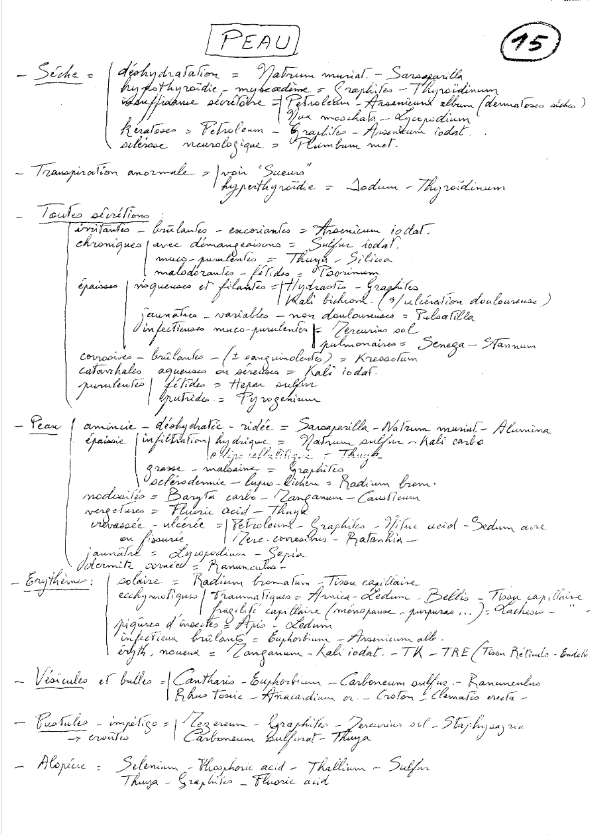 PEAU
15
- Sèche = déshydratation = Natrum muriat. - Sarsaparilla
hypothyroïdie - myxoedème = Graphites - Thyroïdinum
insuffisance sécrétoire = Petroleum - Arsenicum album (dermatoses sèches)
Nux moschata - Lycopodium
kératoses = Petroleum - Graphites - Arsenicum iodat.
sclérose neurologique = Plumbum met.
- Transpiration anormale = voir "Sueurs"
hyperthyroïdie = Iodum - Thyroïdinum
- Toutes sécrétions
irritantes - brûlantes - excoriantes = Arsenicum iodat.
chroniques avec démangeaisons = Sulfur iodat.
muco-purulentes = Thuya - Silicea
malodorantes - fétides = Psorinum
épaisses visqueuses et filantes = Hydrastis - Graphites
Kali bichrom. (s/ulcération douloureuse)
jaunâtres - variables - non douloureuses = Pulsatilla
infectieuses muco-purulentes = Mercurius sol
pulmonaires = Senega - Stannum
corrosives - brûlantes - (± sanguinolentes) = Kreosotum
catarrhales aqueuses ou séreuses = Kali iodat.
purulentes fétides = Hepar sulfur
putrides = Pyrogenium
- Peau amincie - déshydratée - ridée = Sarsaparilla - Natrum muriat - Alumina
épaissie infiltration hydrique = Natrum sulfur - Kali carbo
= Thuya
grasse - malsaine = Graphites
sclérodermie - lupus - lichen = Radium brom.
nodosités = Baryta carbo - Manganum - Causticum
vergetures = Fluoric acid - Thuya
crevassée - ulcérée = Petroleum - Graphites - Nitric acid - Sedum acre
ou fissurée Merc. corrosivus - Ratanhia -
jaunâtre = Lycopodium - Sepia
= Ranunculus -
- Erythèmes: solaire = Radium bromatum - Tissu capillaire
ecchymotiques traumatiques = Arnica - Ledum - Bellis - Tissu capillaire
fragilité capillaire (ménopause - purpuras...) = Lachesis - " -
piqûres d'insectes = Apis - Ledum
infectieux brûlants = Euphorbium - Arsenicum alb.
éryth. noueux = Manganum - Kali iodat. - TK - TRE (Tissu Réticulo - Endoth
- Vésicules et bulles = Cantharis - Euphorbium - Carboneum sulfur - Ranunculus
Rhus toxic - Anacardium or. - Croton - Clematis erecta -
- Pustules - impétigo = Mezereum - Graphites - Mercurius sol - Staphysagria
→ croûtes Carboneum sulfurat - Thuya
- Alopécie = Selenium - Phosphoric acid - Thallium - Sulfur
Thuya - Graphites - Fluoric acid